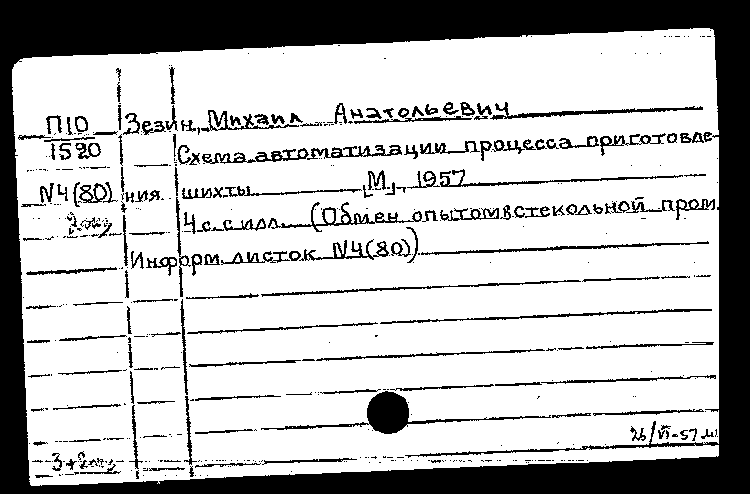 П10 Зезин, Михаил Анатольевич
1520 Схема автоматизации процесса приготовле-
N4(80) ния шихты [М], 1957
2 экз 4 с. с илл. (Обмен опытом в стекольной пром.
Информ. листок N4(80))
26/VI-57 м
3+2экз